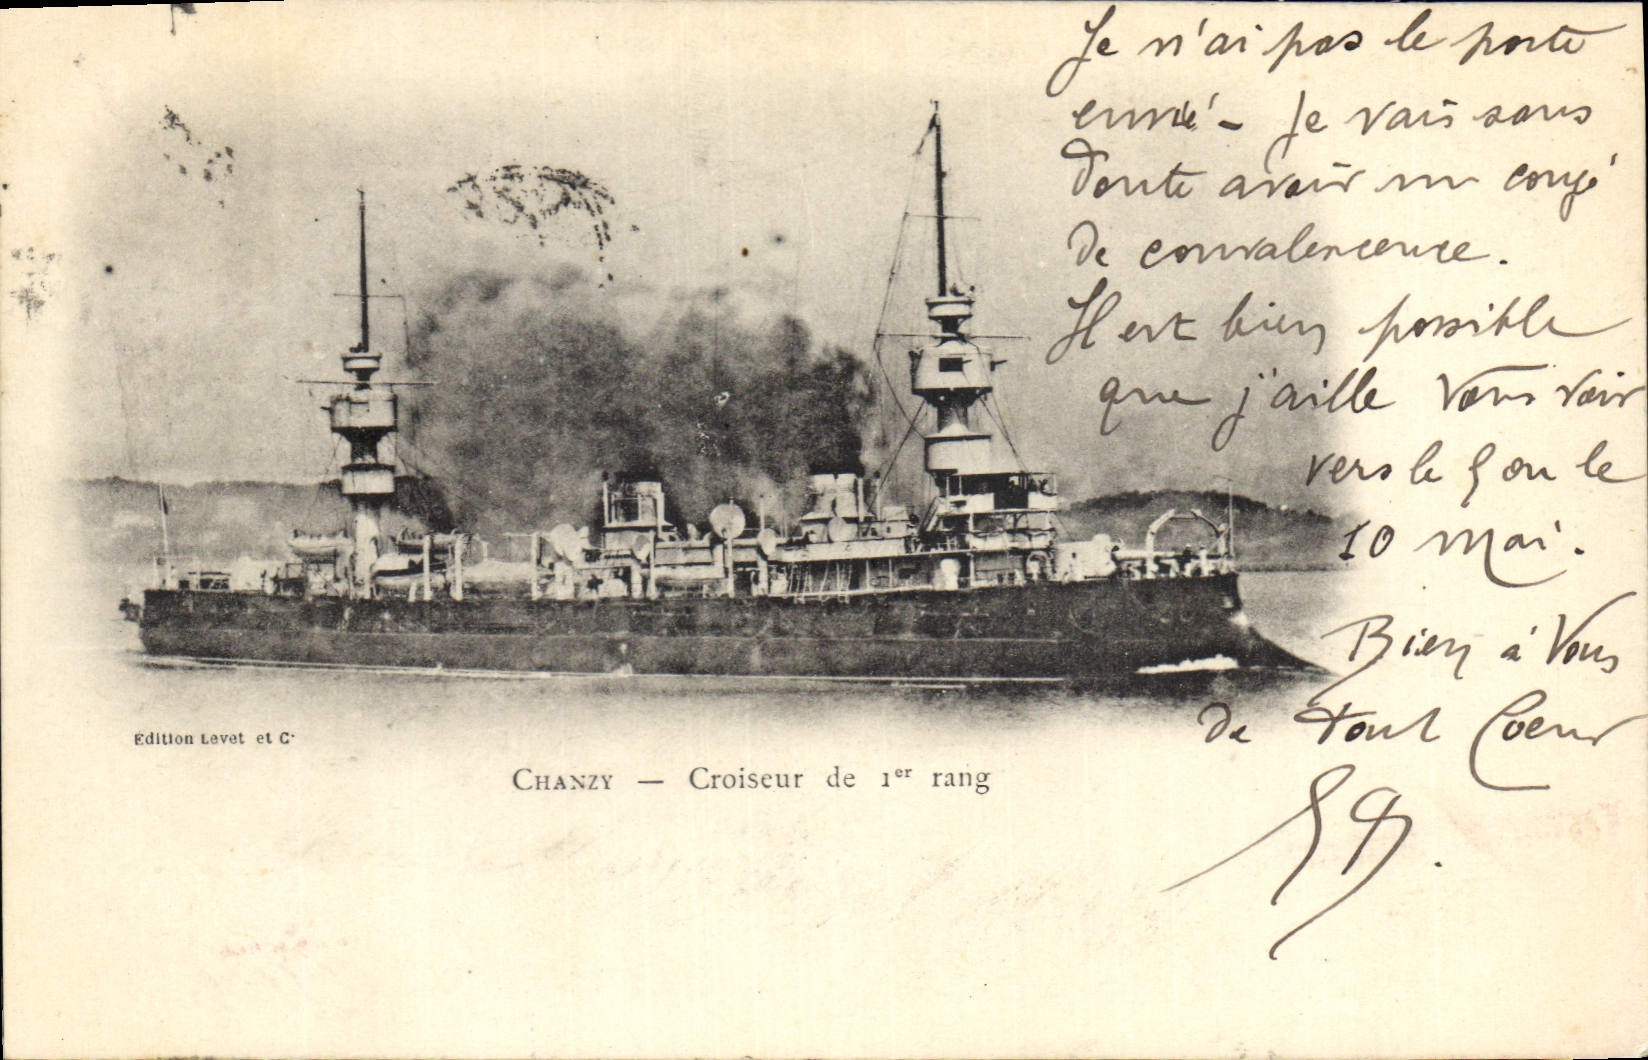 Je n'ai pas le poste
envié - Je vais sans
doute avoir un congé
de convalescence.
Il est bien possible
que j'aille vous voir
vers le 9 ou le
10 Mai.
Bien à Vous
de tout Coeur
Edition Levet et Cie
CHANZY — Croiseur de 1er rang